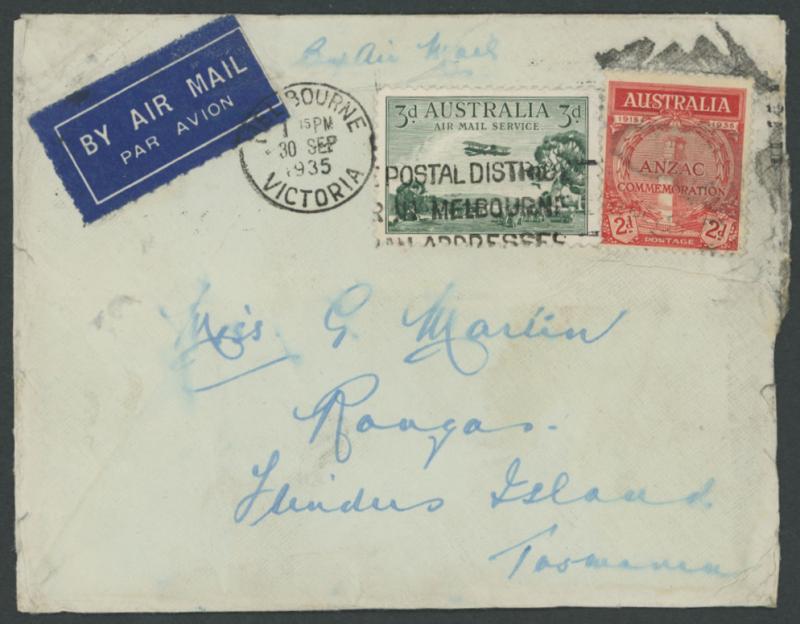 By Air Mail
BY AIR MAIL
PAR AVION
MELBOURNE
1 15 PM
30 SEP
1935
VICTORIA
3d AUSTRALIA 3d
AIR MAIL SERVICE
POSTAL DISTRICT
MELBOURNE
ADDRESSES
AUSTRALIA
1915 1935
ANZAC
COMMEMORATION
2d 2d
POSTAGE
Miss G. Martin
Roogas.
Flinders Island
Tasmania